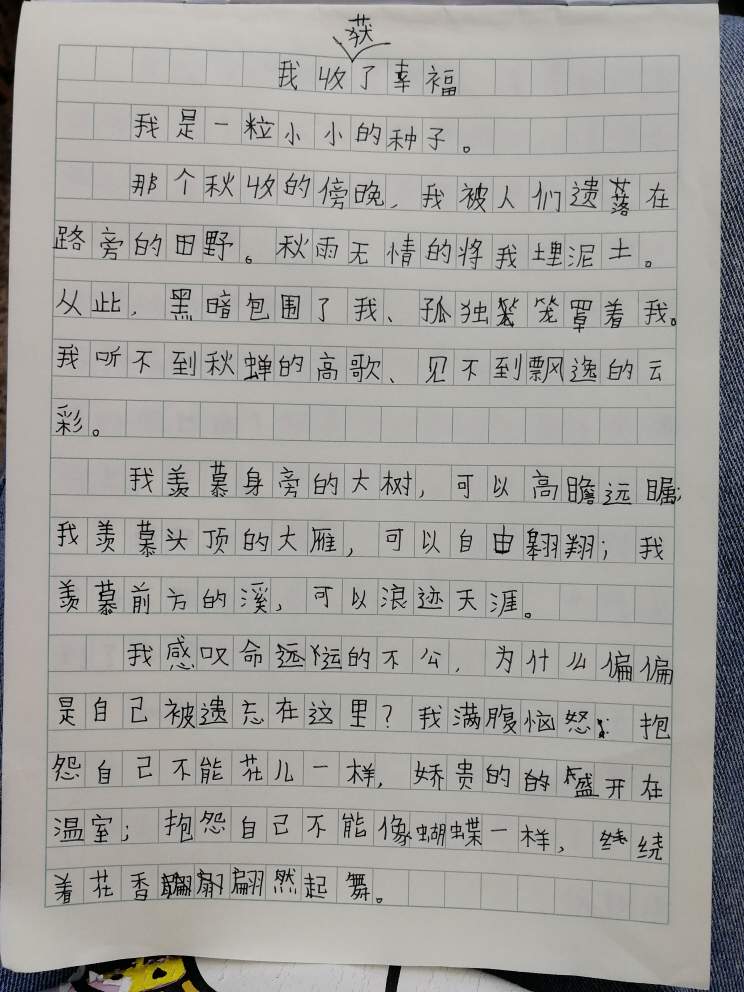 我收获了幸福
我是一粒小小的种子。
那个秋收的傍晚，我被人们遗落在
路旁的田野。秋雨无情的将我埋泥土。
从此，黑暗包围了我、孤独笼罩着我。
我听不到秋蝉的高歌、见不到飘逸的云
彩。
我羡慕身旁的大树，可以高瞻远瞩；
我羡慕头顶的大雁，可以自由翱翔；我
羡慕前方的溪，可以浪迹天涯。
我感叹命运的不公，为什么偏偏
是自己被遗忘在这里？我满腹恼怒：抱
怨自己不能花儿一样，娇贵的盛开在
温室；抱怨自己不能像蝴蝶一样，绕
着花香翩翩然起舞。